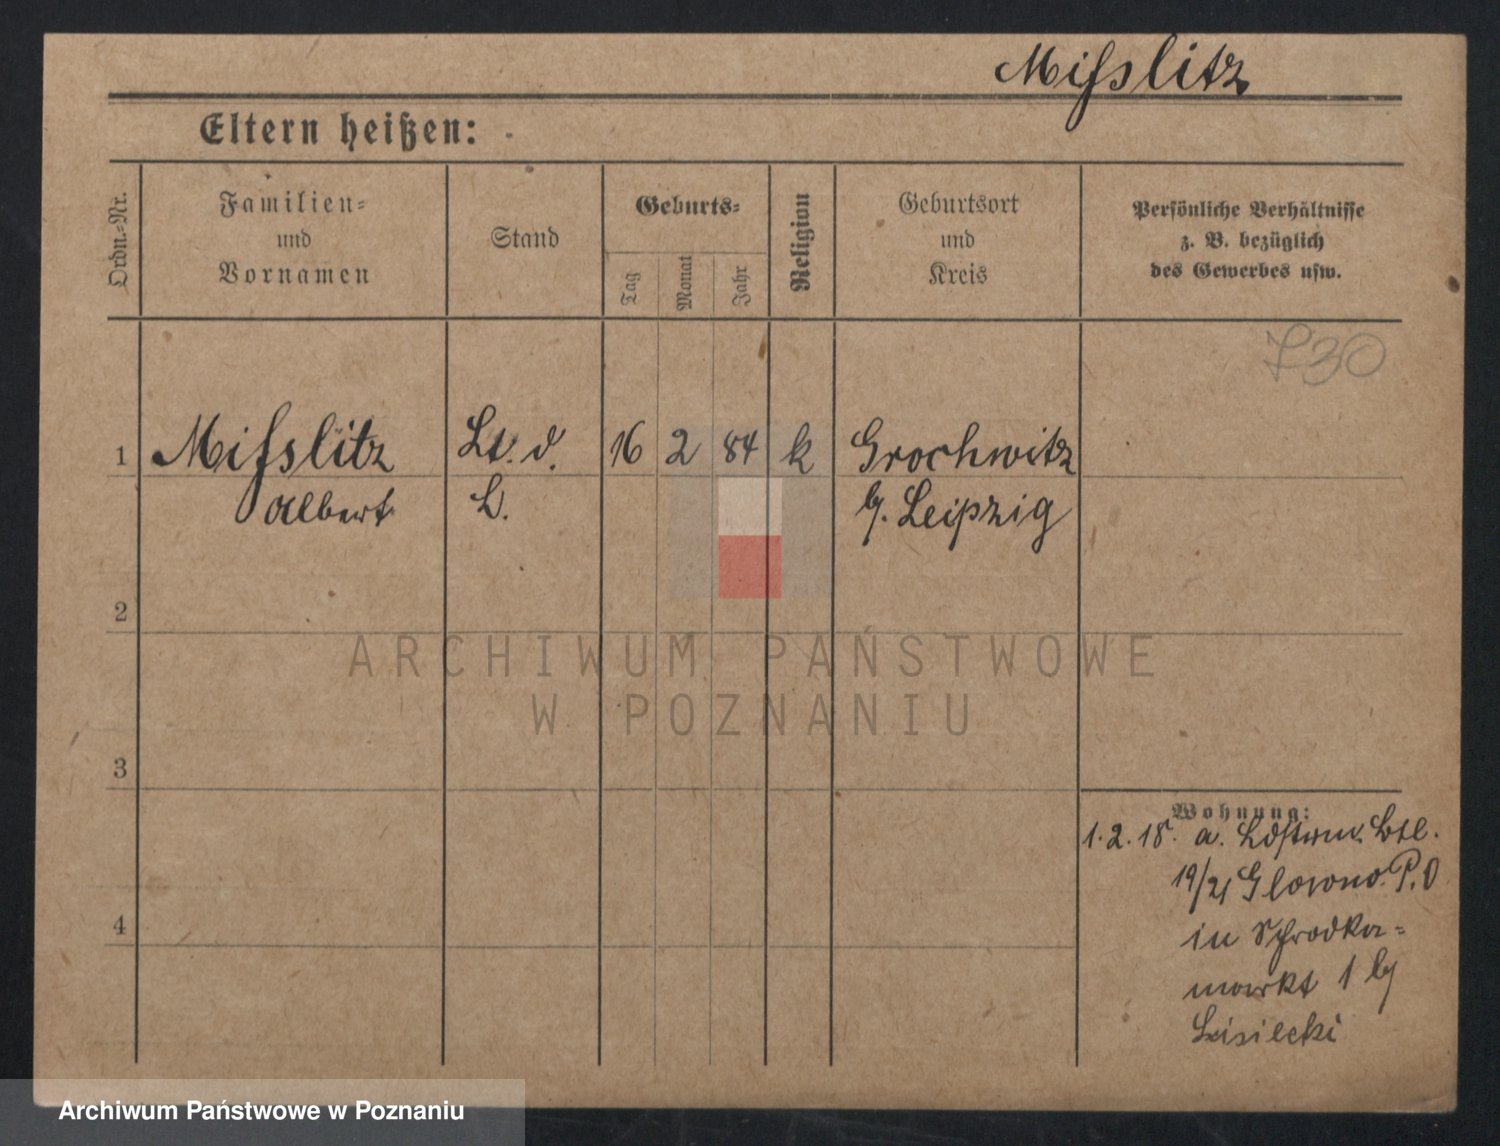 Mißslitz
Eltern heißen:
Ordn.-Nr.
Familien-
und
Vornamen
Stand
Geburts-
Tag
Monat
Jahr
Religion
Geburtsort
und
Kreis
Persönliche Verhältnisse
z. B. bezüglich
des Gewerbes usw.
730
1 Mißslitz Lt. d. 16 2 84 k Grochwitz
Albert L. b. Leipzig
2
ARCHIWUM PAŃSTWOWE
W POZNANIU
3
Wohnung:
1.2.18. a. Ldstrm. Btl.
19/21 Glowno. P.O
in Schrodka-
markt 1 b
4
Archiwum Państwowe w Poznaniu